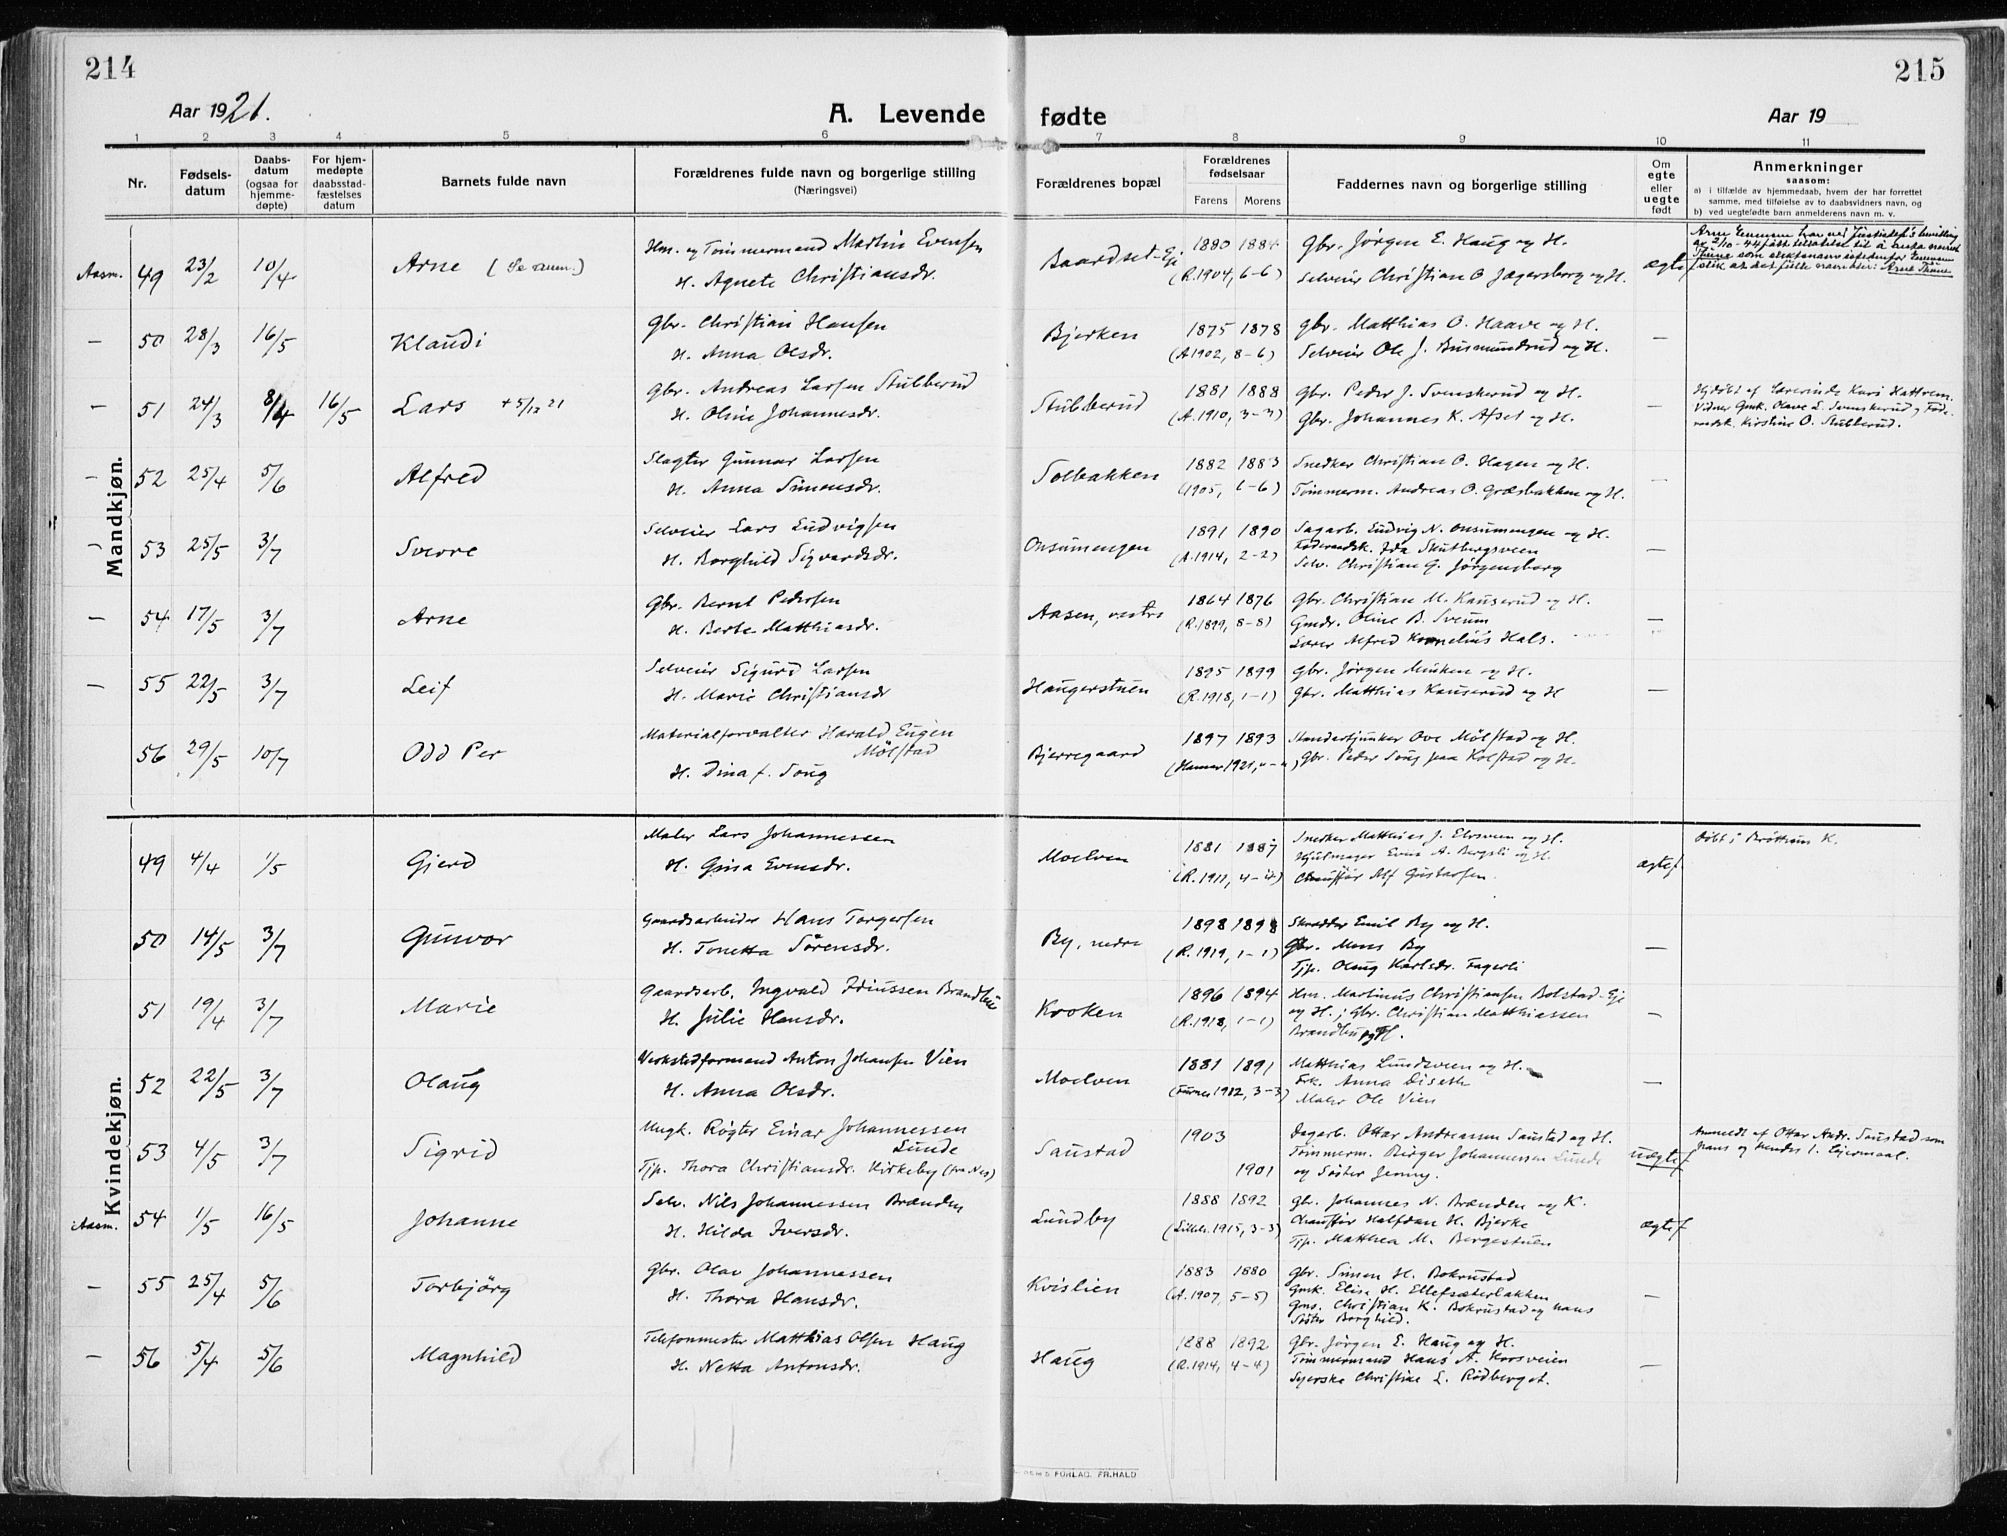 214
215
Aar 1921.
A. Levende fødte
Aar 19
1 2 3 4 5 6 7 8 9 10 11
Nr.
Fødsels-
datum
Daabs-
datum
(ogsaa for
hjemme-
døpte)
For hjem-
medøpte
daabsstad-
fæstelses
datum
Barnets fulde navn
Forældrenes fulde navn og borgerlige stilling
(Næringsvei)
Forældrenes bopæl
Forældrenes
fødselsaar
Farens Morens
Faddernes navn og borgerlige stilling
Om
egte
eller
uegte
født
Anmerkninger
saasom:
a) i tilfælde av hjemmedaab, hvem der har forrettet
samme, med tilføielse av to daabsvidners navn, og
b) ved uegtefødte barn anmelderens navn m. v.
Mandkjøn.
Aasm. 49 23/2 10/4 Arne (Se anm.)
Hm. og Tømmermand Martin Evensen
H. Agnete Christiansdr.
Baardset-Eje
1880 1884
(R. 1904, 6-6)
Gbr. Jørgen E. Haug og H.
Selveier Christian O. Jægersborg og H.
ægtef
Arne Evensen har ved Justisdep's bevilling
av 2/10-44 fått tillatelse til å anta navnet
Thune som slektsnavn istedenfor Evensen
slik at det fulle navn blir: Arne Thune
— 50 28/3 16/5 Klaudi
Gbr. Christian Hansen
H. Anna Olsdr.
Bjerken
1875 1878
(A. 1902, 8-6)
Gbr. Matthias O. Haave og H.
Selveier Ole J. Busmundrud og H.
—
— 51 24/3 8/4 16/5 Lars + 5/12 21
Gbr. Andreas Larsen Stubberud
H. Oline Johannesdr.
Stubberud
1881 1888
(A. 1910, 3-3)
Gbr. Peder J. Svenskerud og H.
Gbr. Johannes K. Afset og H.
—
Hjdøbt af Lærerinde Kari Hattrem.
Vidner Gmk. Olave L. Svenskerud og Føde-
raadsk. Kirstine O. Stubberud.
— 52 25/4 5/6 Alfred
Slagter Gunnar Larsen
H. Anna Simensdr.
Solbakken
1882 1883
(1905, 6-6)
Snedker Christian O. Hagen og H.
Tømmerm. Andreas O. Græsbakken og H.
—
— 53 25/5 3/7 Sverre
Selveier Lars Ludvigsen
H. Borghild Sigvardsdr.
Onsumengen
1891 1890
(A. 1914, 2-2)
Sagarb. Ludvig N. Onsumengen og H.
Føderaadsk. Ida Skutbergsveen
Selv. Christian G. Jørgensborg
—
— 54 17/5 3/7 Arne
Gbr. Bernt Pedersen
H. Berte Matthiasdr.
Aasen, vestre
1864 1876
(R. 1899, 8-8)
Gbr. Christian M. Kauserud og H.
Gmdr. Oline B. Sveum
Lærer Alfred Kornelius Hals.
—
— 55 22/5 3/7 Leif
Selveier Sigurd Larsen
H. Marie Christiansdr
Haugerstuen
1895 1899
(R. 1918, 1-1)
Gbr. Jørgen Minken og H.
Gbr. Matthias Kauserud og H
—
56 29/5 10/7 Odd Per
Materialforvalter Harald Eugen
Mølstad
H. Dina f. Soug
Bjerregaard
1897 1893
(Hamar 1921, "-")
Standartjunker Ove Mølstad og H.
Gbr. Peder Soug paa Kolstad og H.
Kvindekjøn.
49 4/4 1/5 Gjerd
Maler Lars Johannessen
H. Gina Evensdr.
Moelven
1881 1887
(R. 1911, 4-4)
Snedker Matthias J. Elvsveen og H.
Hjulmager Even A. Bergsli og H.
Chauffør Alf Gustavsen
ægtef
Døbt i Brøttum K.
50 14/5 3/7 Gunvor
Gaardsarbeider Hans Torgersen
H. Tonetta Sørensdr.
By, nedre
1898 1898
(R. 1919, 1-1)
Skrædder Emil By og H.
Gbr. Mons By
Tjp. Olaug Karlsdr. Fagerli
—
51 19/4 3/7 Marie
Gaardsarb. Ingvald Idiussen Brandbu
H. Julie Hansdr.
Kroken
1896 1894
(R. 1918, 1-1)
Hm. Martinus Christiansen Bolstad-Eje
og H.; Gbr. Christian Matthiassen
Brandbu og H.
—
52 22/5 3/7 Olaug
Verkstedformand Anton Johansen Vien
H. Anna Olsdr.
Moelven
1881 1891
(Furnes 1912, 3-3)
Matthias Lundsveen og H.
Frk. Anna Diseth
Maler Ole Vien
—
53 4/5 3/7 Sigrid
Ungk. Røgter Einar Johannessen
Lunde
Tjp. Thora Christiansdr. Kirkeby (fra Nes)
Saustad
1903
1901
Dagarb. Ottar Andreassen Saustad og H.
Tømmerm. Birger Johannessen Lunde
og Søster Jenny.
uægtef
Anmeldt af Ottar Andr. Saustad som
hans og hendes 1. Lejermaal.
Aasm. 54 1/5 16/5 Johanne
Selv. Nils Johannessen Brænden
H. Hilda Iversdr.
Lundby
1888 1892
(Lilleh. 1915, 3-3)
Gbr. Johannes N. Brænden og K.
Chauffør Halfdan H. Bjerke
Tjp. Matthea M. Bergestuen
ægtef
— 55 25/4 5/6 Torbjørg
Gbr. Olav Johannessen
H. Thora Hansdr.
Kvislien
1883 1880
(A. 1907, 5-5)
Gbr. Simen H. Bokrustad
Gmk. Elise H. Ellefsæterbakken
Gms. Christian K. Bokrustad og hans
Søster Borghild.
—
— 56 5/4 5/6 Magnhild
Telefonmester Matthias Olsen Haug
H. Netta Antonsdr.
Haug
1888 1892
(R. 1914, 4-4)
Gbr. Jørgen E. Haug og H.
Tømmermand Hans A. Korsveien
Syerske Christine L. Rødberget.
—
FORLAG, FR.HALD